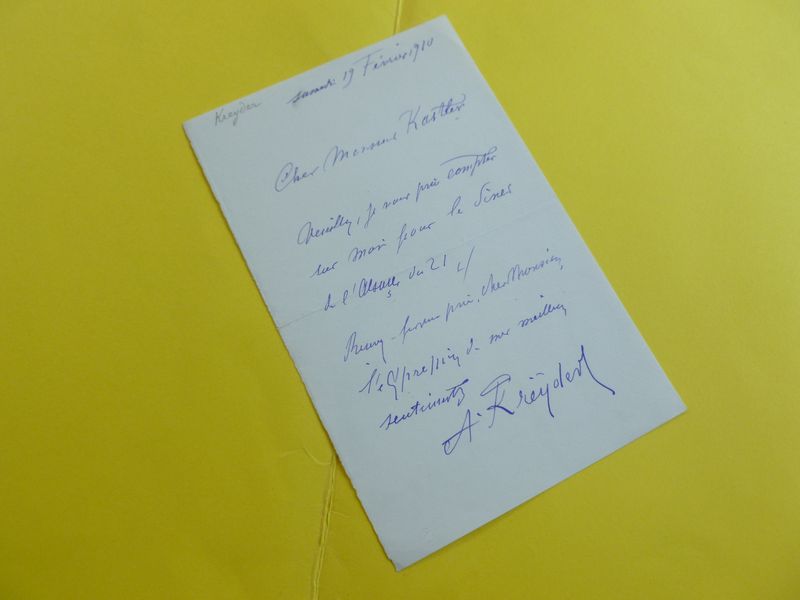 Kreyder
samedi 19 Février 1910
Cher Monsieur Kastler
Veuillez, je vous prie compter
sur moi pour le Diner
de l'Alsace du 21
Recevez je vous prie, cher Monsieur,
l'expression de mes meilleurs
sentiments
A. Kreyder